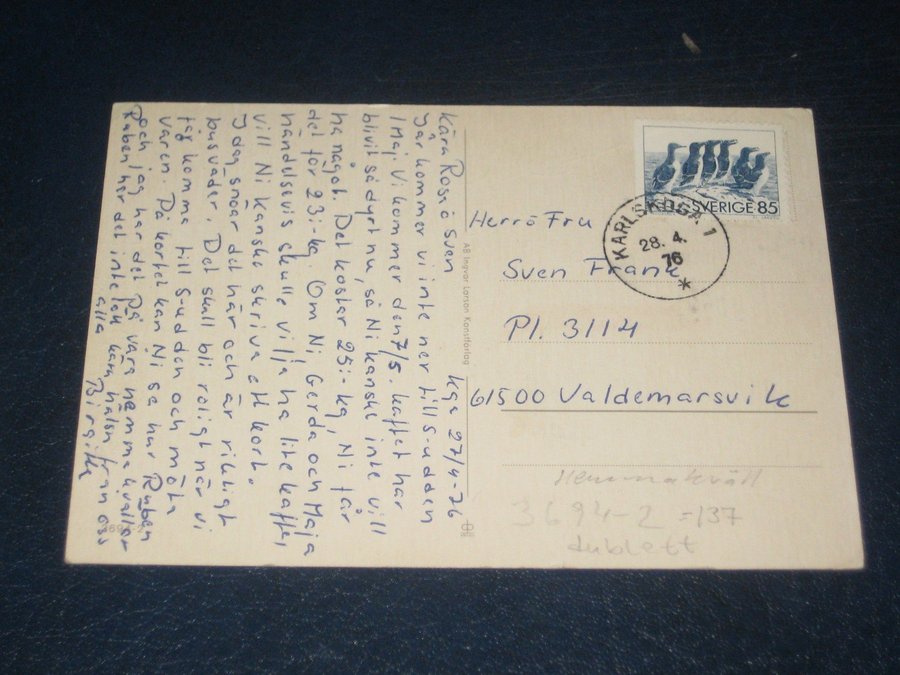 Kga 27/4-76
Kära Rosa o Sven
I år kommer vi inte ner till S-udden
1 Maj. Vi kommer den 7/5. Kaffet har
blivit så dyrt nu, så Ni kanske inte vill
ha något. Det kostar 25:- kg, Ni får
det för 23:- kg. Om Ni Gerda och Maja
händelsevis skulle vilja ha lite kaffe,
vill Ni kanske skriva ett kort.
Idag snöar det här och är riktigt
busväder. Det skall bli roligt när vi
får komma till S-udden och möta
våren. På kortet kan Ni se hur Ruben
och jag har det på våra hemmakvällar
Ruben har det inte
alla kära hälsn från oss
Birgitta
AB Ingvar Larson Konstförlag
SVERIGE 85
KARLSKOGA 1
28. 4.
76
Herr o Fru
Sven Frank
Pl. 3114
61500 Valdemarsvik
Hemmakväll
3694-2 =137
dublett